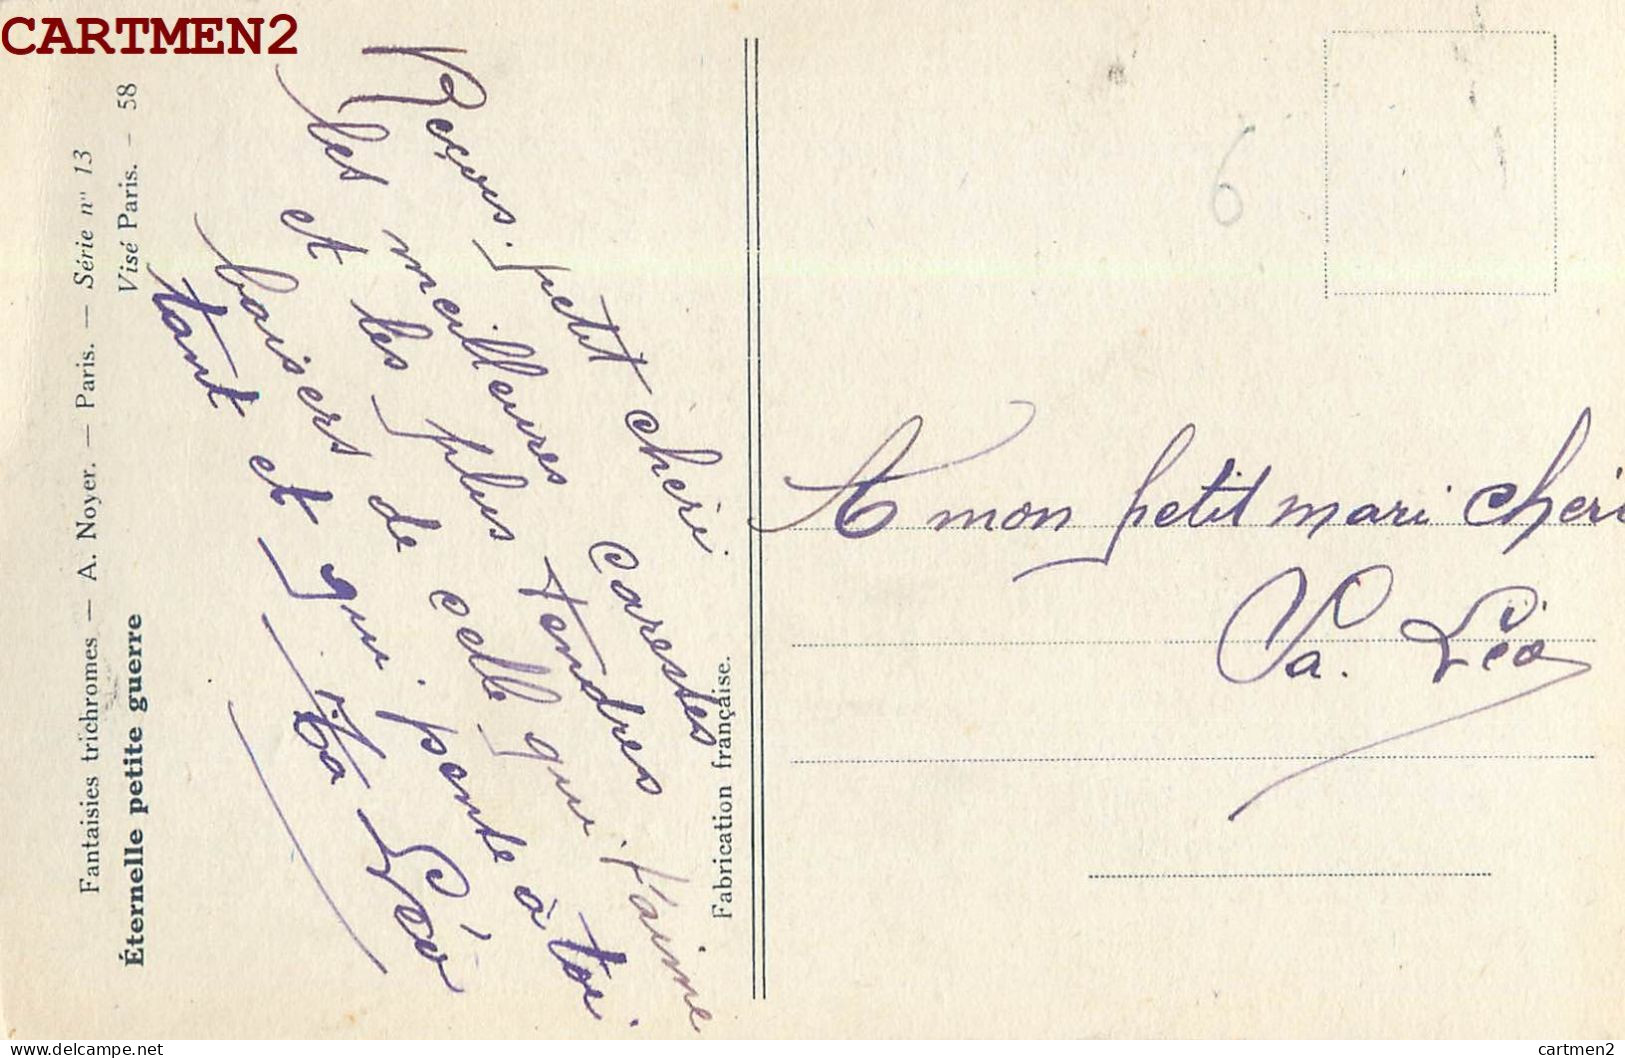 CARTMEN2
Fantaisies trichromes — A. Noyer. — Paris. — Série n° 13
Éternelle petite guerre
Visé Paris. - 58
Reçois. petit chéri.
les meilleures caresses
et les plus tendres
baisers de celle qui. t'aime
tant et qui. pense à toi.
Ta Léo
Fabrication française.
6
A mon petit mari cheri
Sa. Léo
delcampe.net
cartmen2